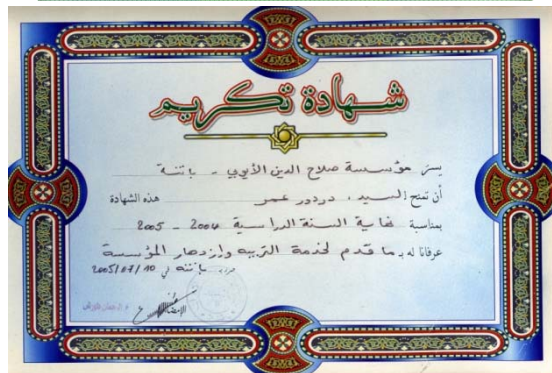 شهادة تكريم
يسر مؤسسة صلاح الدين الأيوبي - باتنة
أن تمنح السيد : دردور عمر هذه الشهادة
بمناسبة نهاية السنة الدراسية 2004 - 2005
عرفانا له بـ ما قدم لخدمة التربية وازدهار المؤسسة
باتنة في 2005/07/10
الإمضاء